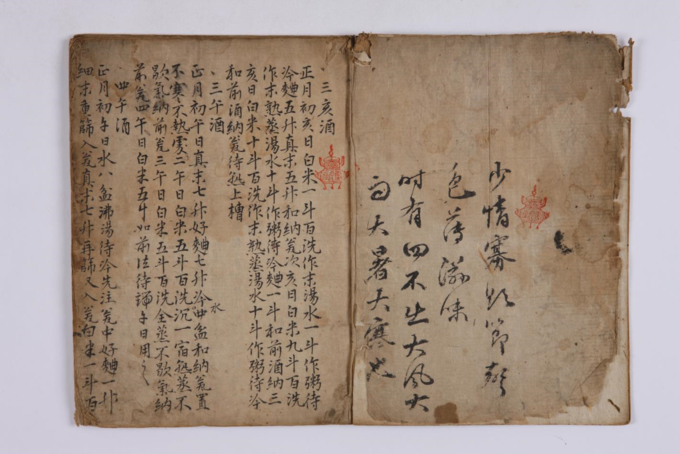 少情寡欲節聲
色薄滋味
時有四不出大風大
雨大暑大寒也
三亥酒
正月初亥日白米一斗百洗作末湯水一斗作粥待
冷麯五升真末五升和納瓮次亥日白米九斗百洗
作末熟蒸湯水十斗作粥待冷麯一斗和前酒納三
亥日白米十斗百洗作末熟蒸湯水十斗作粥待冷
和前酒納瓮待熟上槽
三午酒
正月初午日真末七升好麯七升冷水四盆和納瓮置
不寒不熱處二午日白米五斗百洗沉一宿熟蒸不
歇氣納前瓮三午日白米五斗百洗全蒸不歇氣納
前瓮四午日白米五斗如前法待端午日用之
四午酒
正月初午日水八盆沸湯待冷先注瓮中好麯一升
細末重篩入瓮真末七升再篩又入瓮白米一斗百